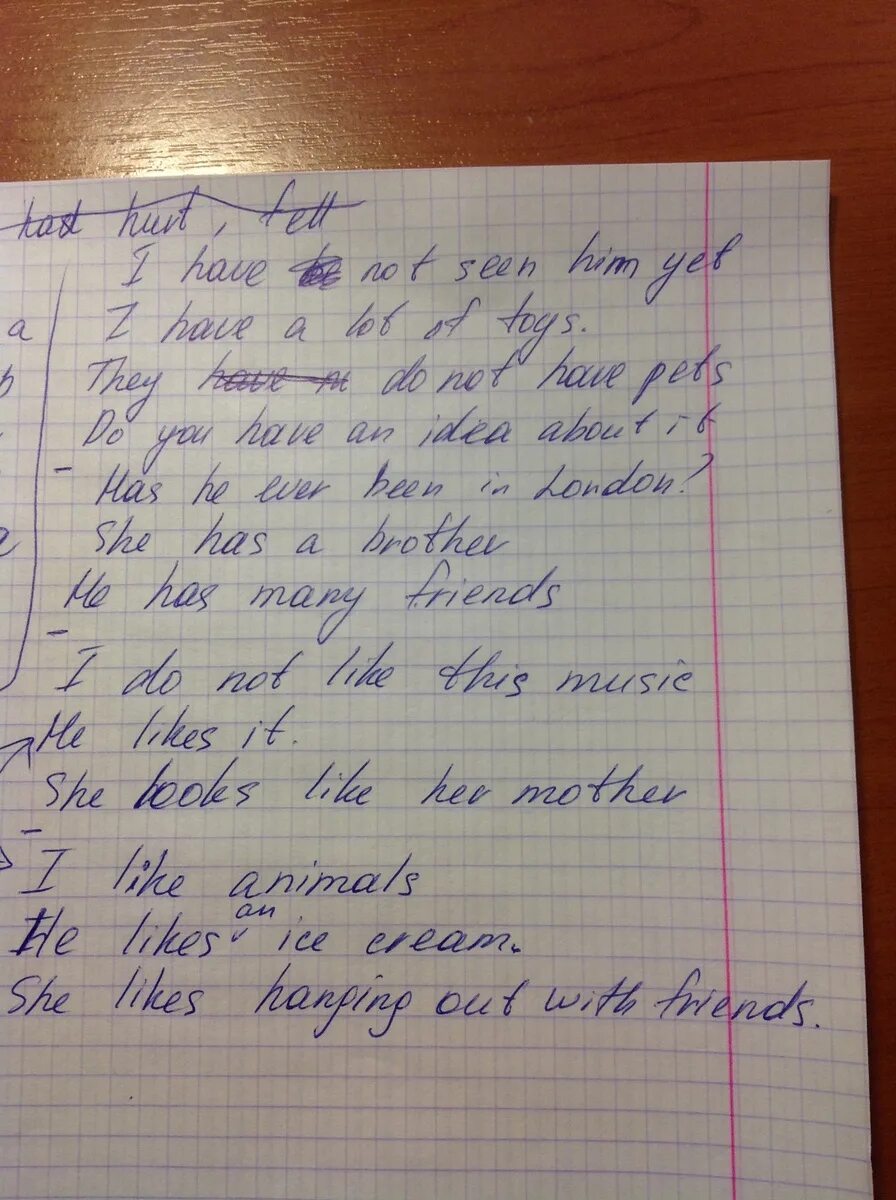 had hurt, fell
I have not seen him yet
a I have a lot of toys.
They have n do not have pets
Do you have an idea about it
- Has he ever been in London?
a She has a brother
He has many friends
-
I do not like this music
He likes it.
She looks like her mother
-
I like animals
He likes an ice cream.
She likes hanging out with friends.